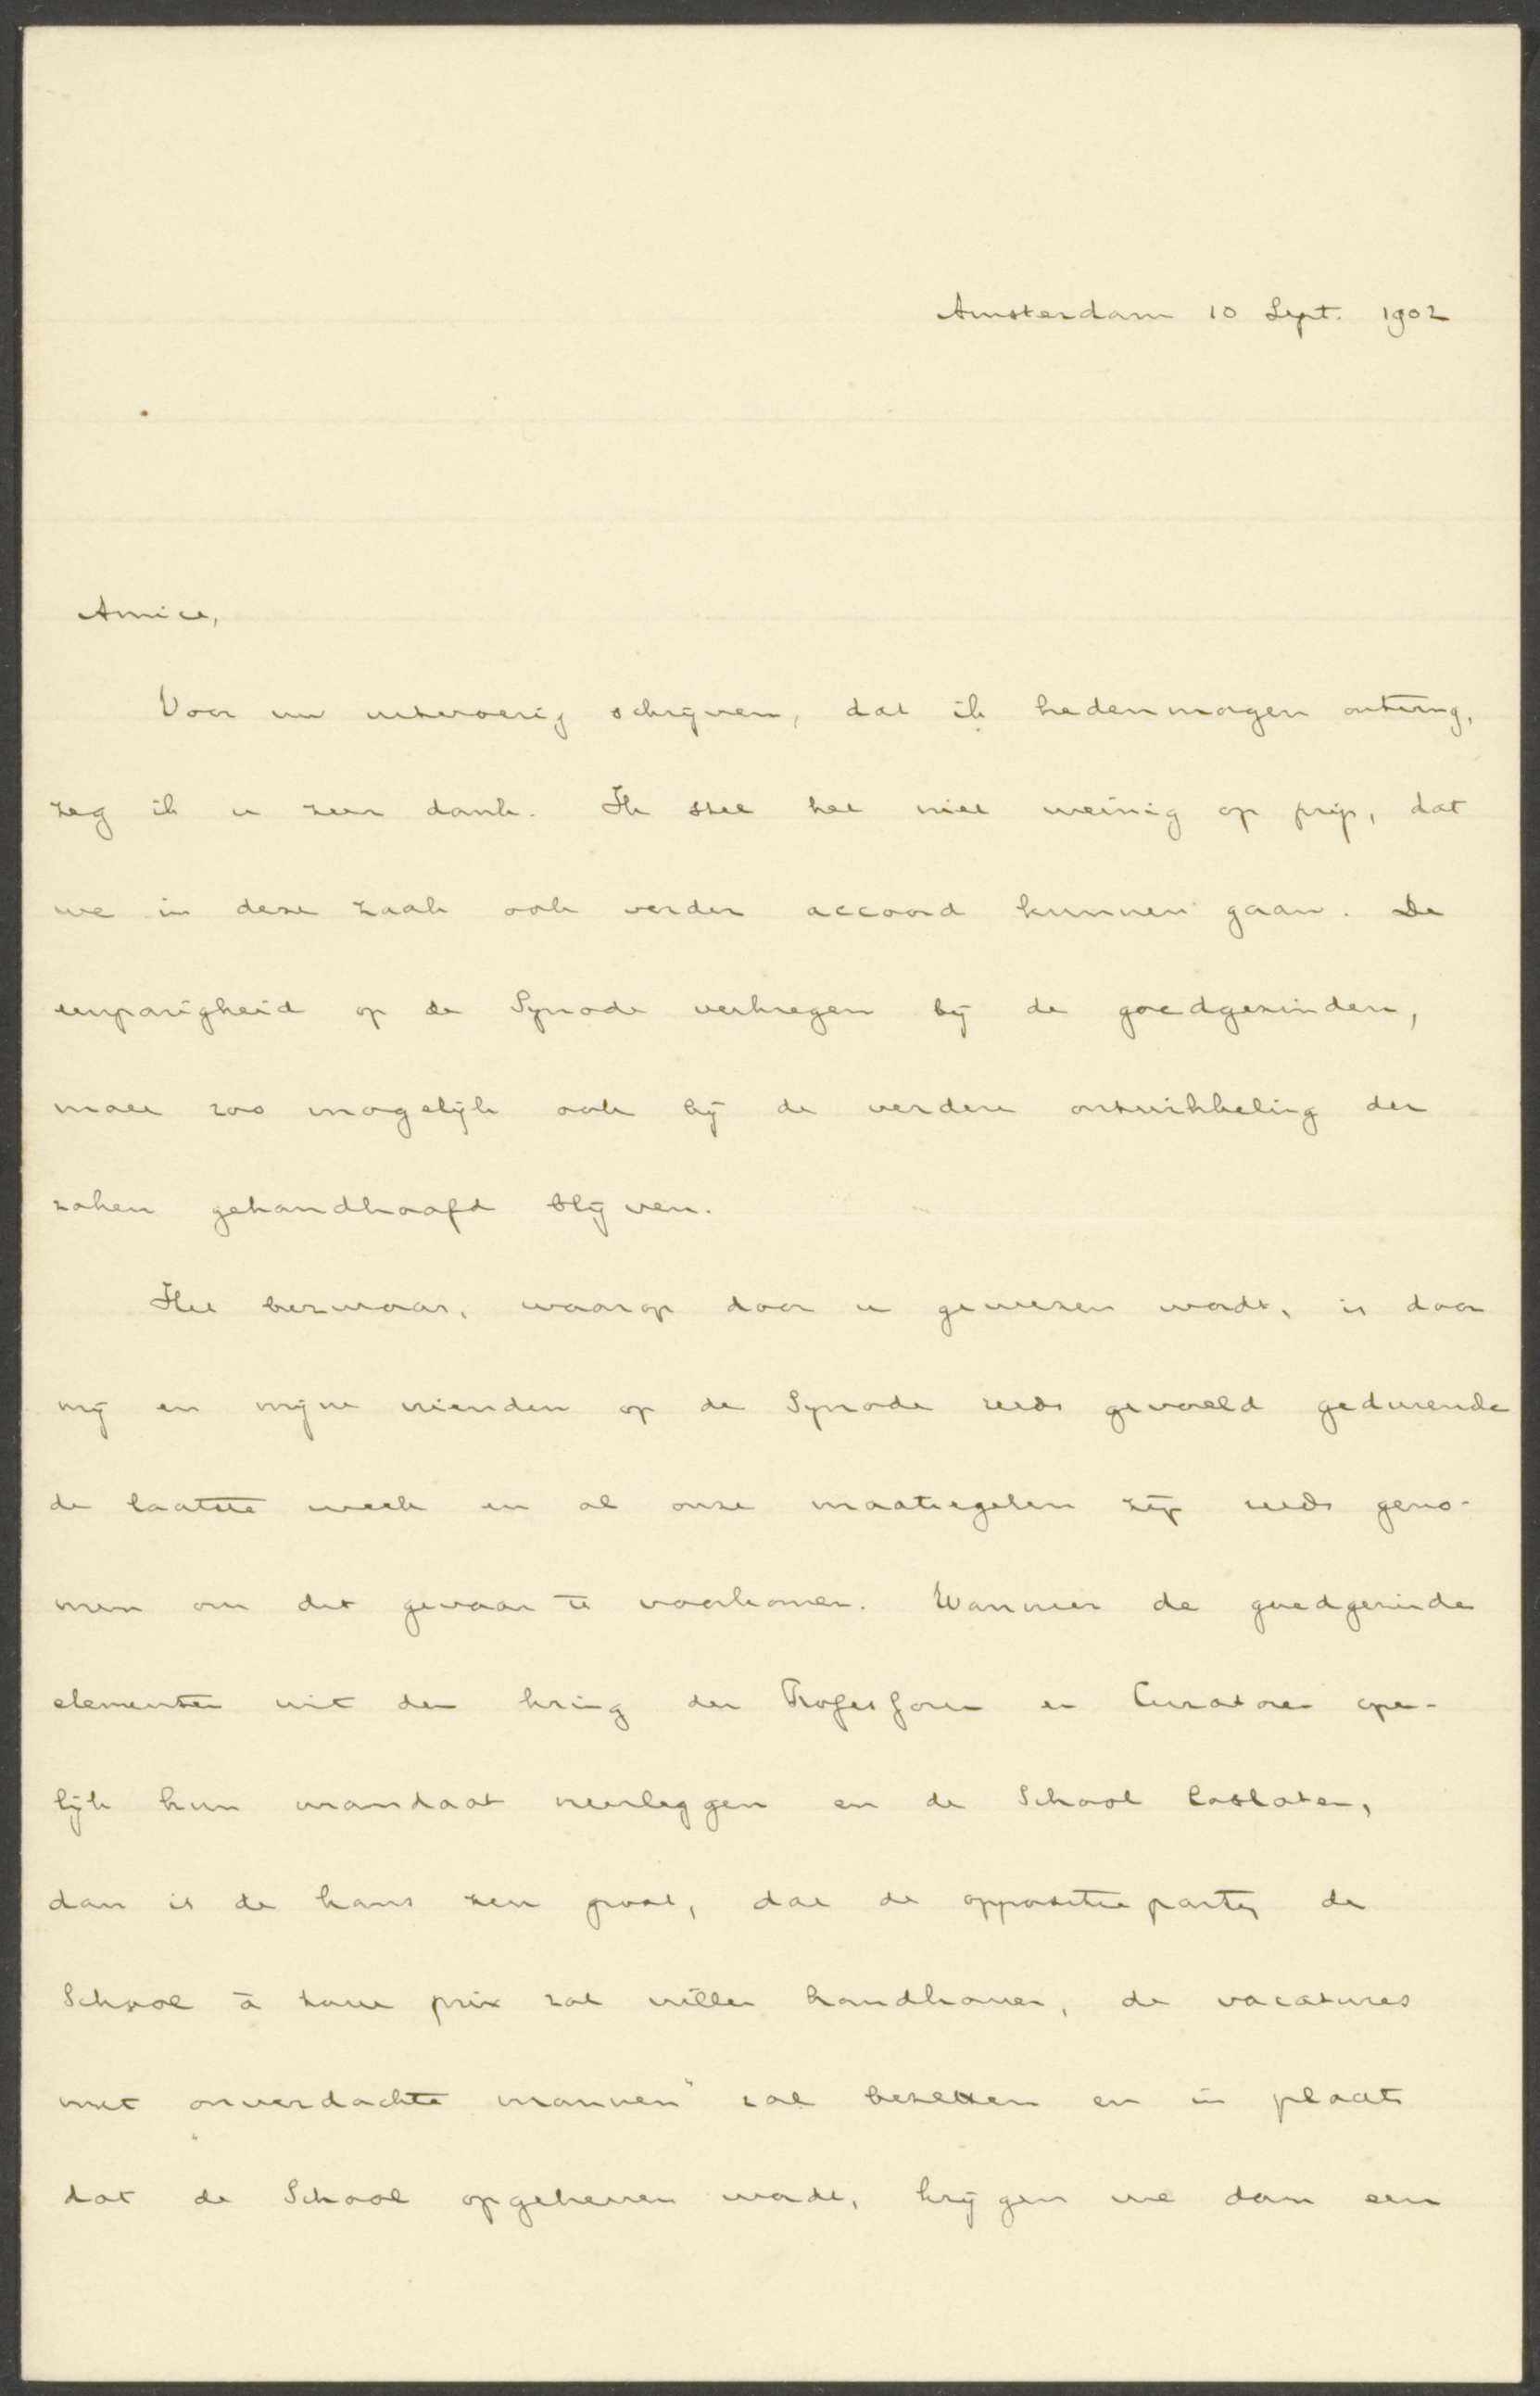 Amsterdam 10 Sept. 1902
Amice,
Voor uw uitvoerig schrijven, dat ik hedenmorgen ontving,
zeg ik u zeer dank. Ik stel het niet weinig op prijs, dat
we in deze zaak ook verder accoord kunnen gaan. De
eenparigheid op de Synode verkregen bij de goedgezinden,
moet zoo mogelijk ook bij de verdere ontwikkeling der
zaken gehandhaafd blijven.
Het bezwaar, waarop door u gewezen wordt, is door
mij en mijne vrienden op de Synode reeds gevoeld gedurende
de laatste week en al onze maatregelen zijn reeds geno-
men om dit gevaar te voorkomen. Wanneer de goedgezinde
elementen uit den kring der Professoren en Curatoren ope-
lijk hun mandaat neerleggen en de School loslaten,
dan is de kans zeer groot, dat de oppositie partij de
School à tout prix zal willen handhaven, de vacatures
met „onverdachte mannen" zal bezetten en in plaats
dat de School opgeheven wordt, krijgen we dan een